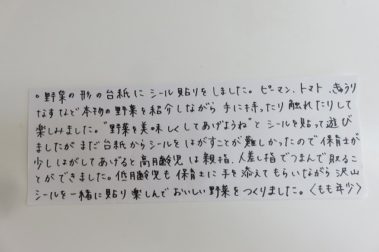 。野菜の形の台紙にシール貼りをしました。ピーマン、トマト、きゅうり
なすなど本物の野菜を紹介しながら手に持ったり触れたりして
楽しみました。"野菜を美味しくしてあげようね"とシールを貼って遊び
ましたがまだ台紙からシールをはがすことが難しかったので保育士が
少しはがしてあげると高月齢児は親指、人差し指でつまんで取るこ
とができました。低月齢児も保育士に手を添えてもらいながら沢山
シールを一緒に貼り楽しんでおいしい野菜をつくりました。〈もも年少〉